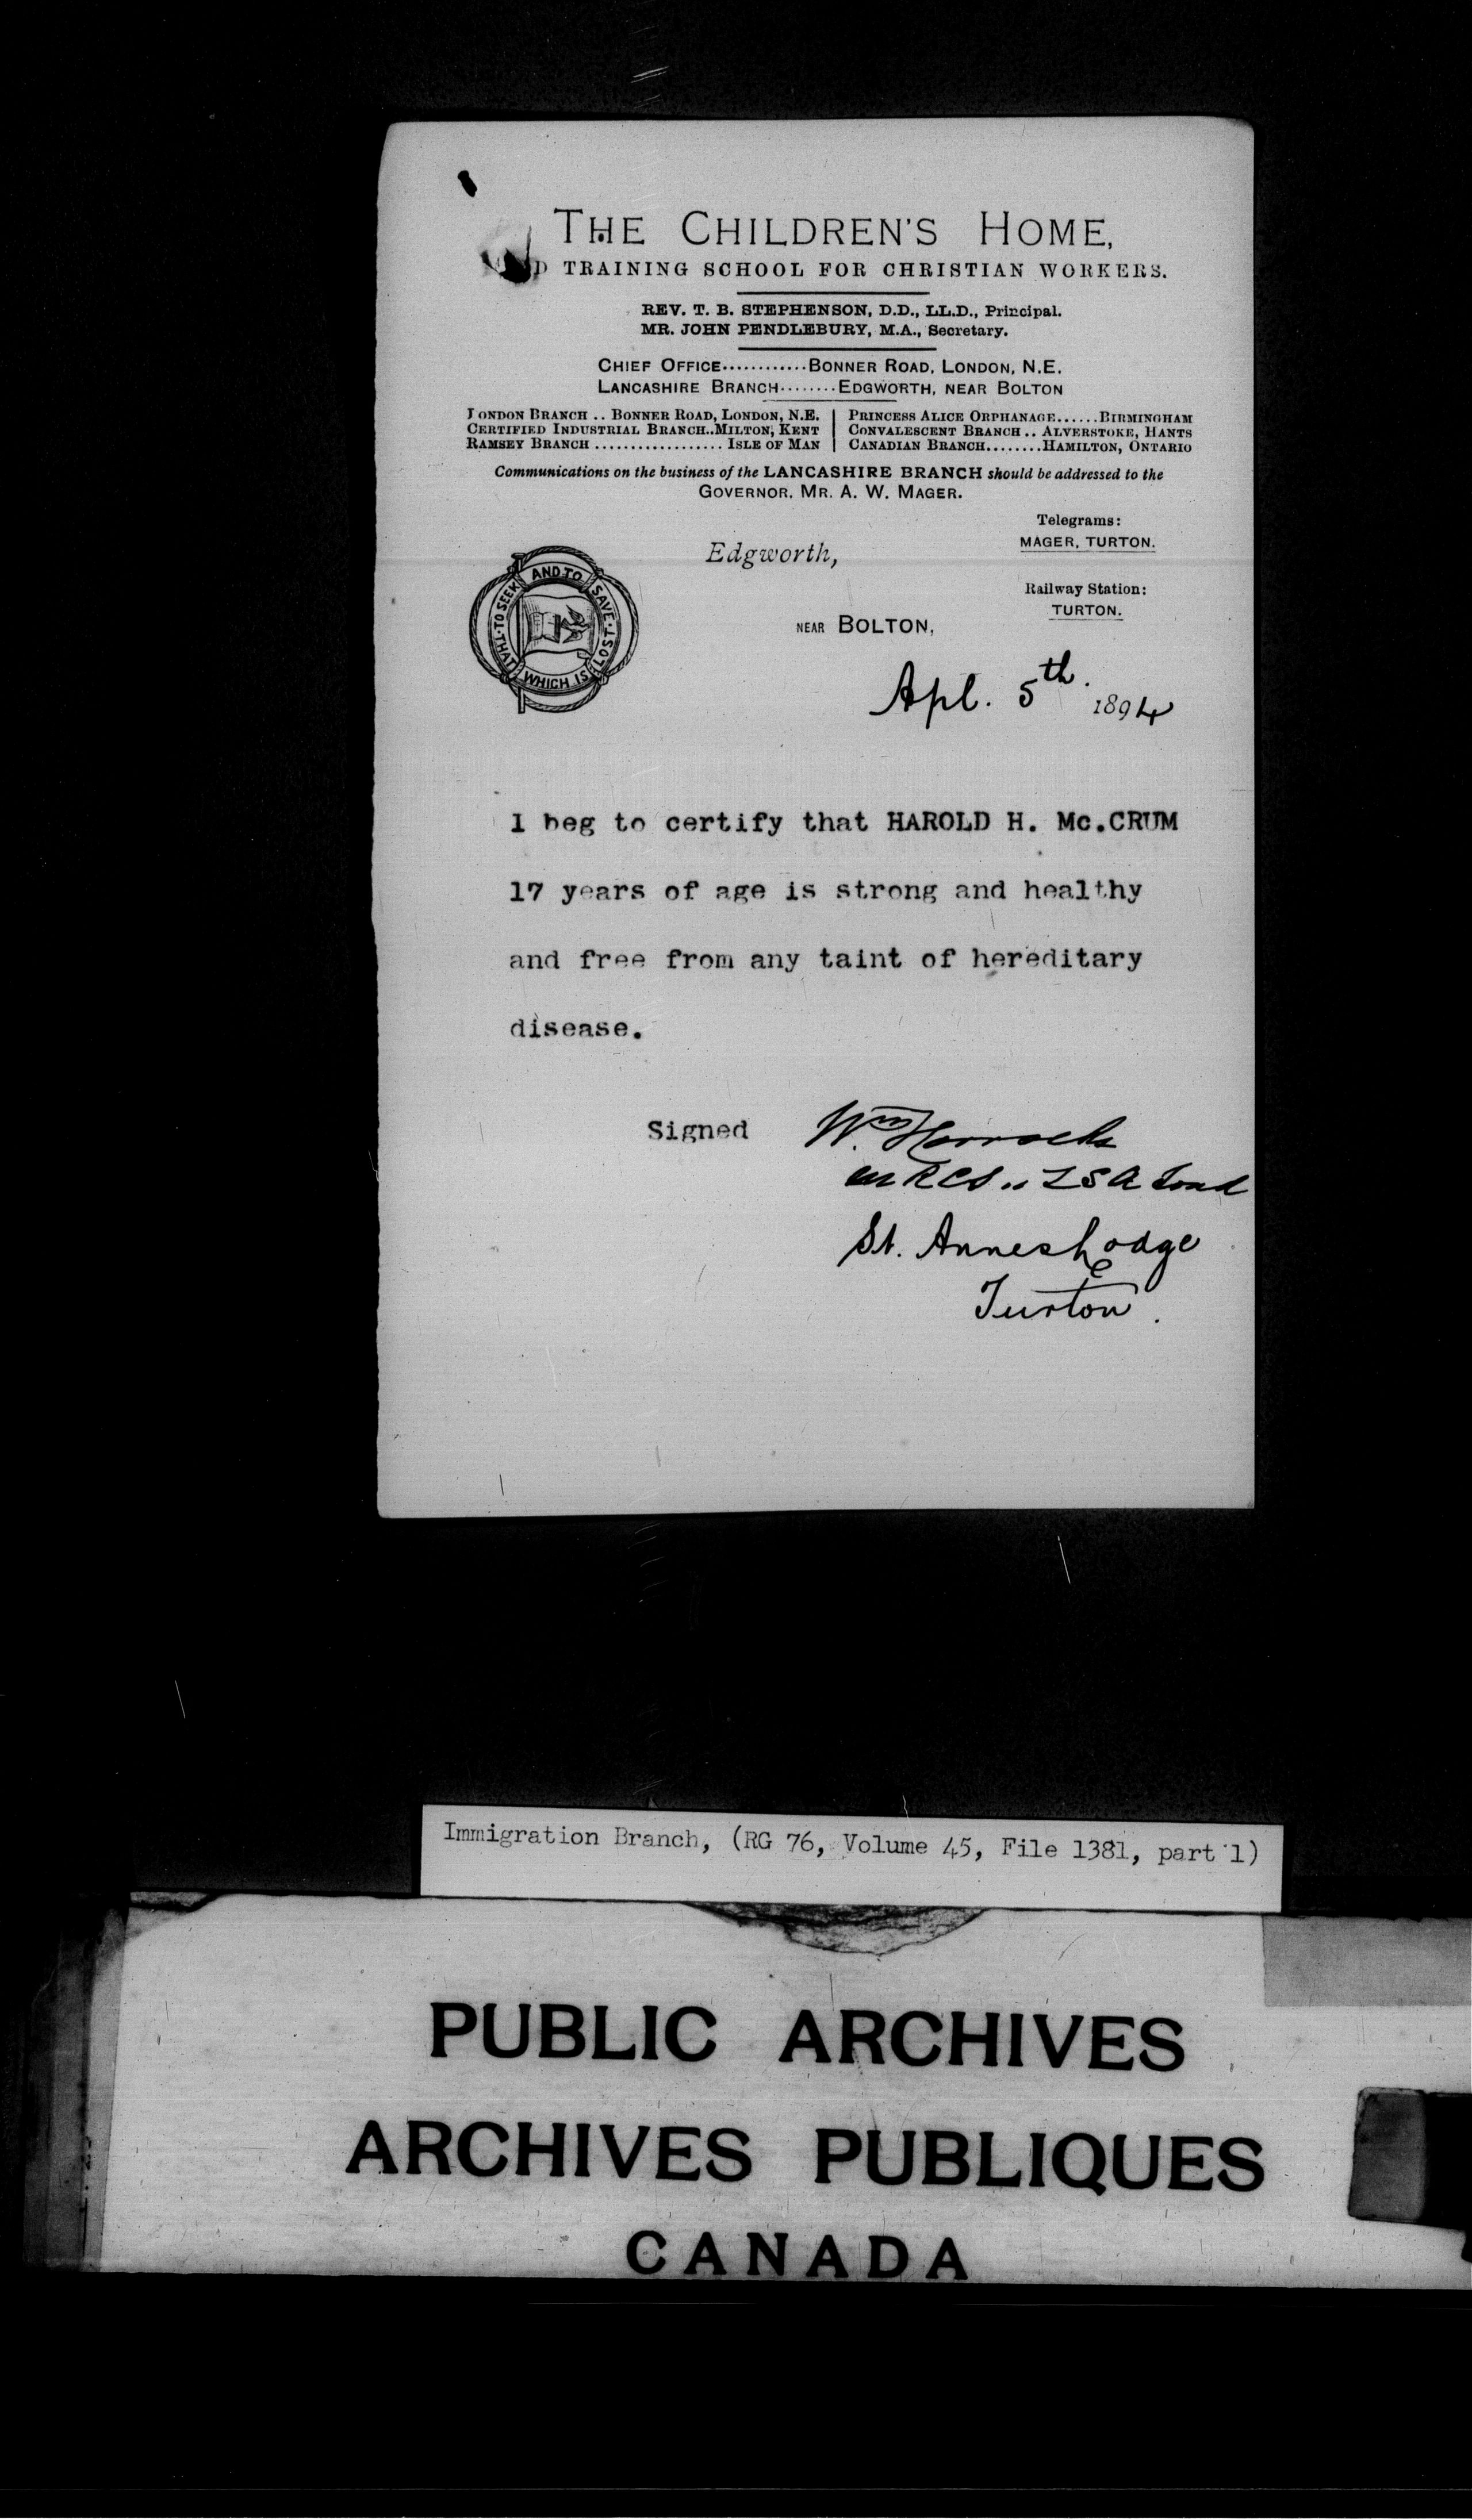 THE CHILDREN'S HOME,
D TRAINING SCHOOL FOR CHRISTIAN WORKERS.
REV. T. B. STEPHENSON, D.D., LL.D., Principal.
MR. JOHN PENDLEBURY, M.A., Secretary.
CHIEF OFFICE............BONNER ROAD, LONDON, N.E.
LANCASHIRE BRANCH........EDGWORTH, NEAR BOLTON
LONDON BRANCH .. BONNER ROAD, LONDON, N.E. | PRINCESS ALICE ORPHANAGE......BIRMINGHAM
CERTIFIED INDUSTRIAL BRANCH..MILTON, KENT | CONVALESCENT BRANCH .. ALVERSTOKE, HANTS
RAMSEY BRANCH .................. ISLE OF MAN | CANADIAN BRANCH........HAMILTON, ONTARIO
Communications on the business of the LANCASHIRE BRANCH should be addressed to the
GOVERNOR. MR. A. W. MAGER.
Telegrams:
MAGER, TURTON.
Edgworth,
Railway Station:
TURTON.
NEAR BOLTON,
TO SEEK AND TO SAVE THAT WHICH IS LOST
Apl. 5th. 1894
I beg to certify that HAROLD H. Mc.CRUM
17 years of age is strong and healthy
and free from any taint of hereditary
disease.
Signed Wm Horrocks
MRCS .. LSA Lond
St. Annes Lodge
Turton.
Immigration Branch, (RG 76, Volume 45, File 1381, part 1)
PUBLIC ARCHIVES
ARCHIVES PUBLIQUES
CANADA